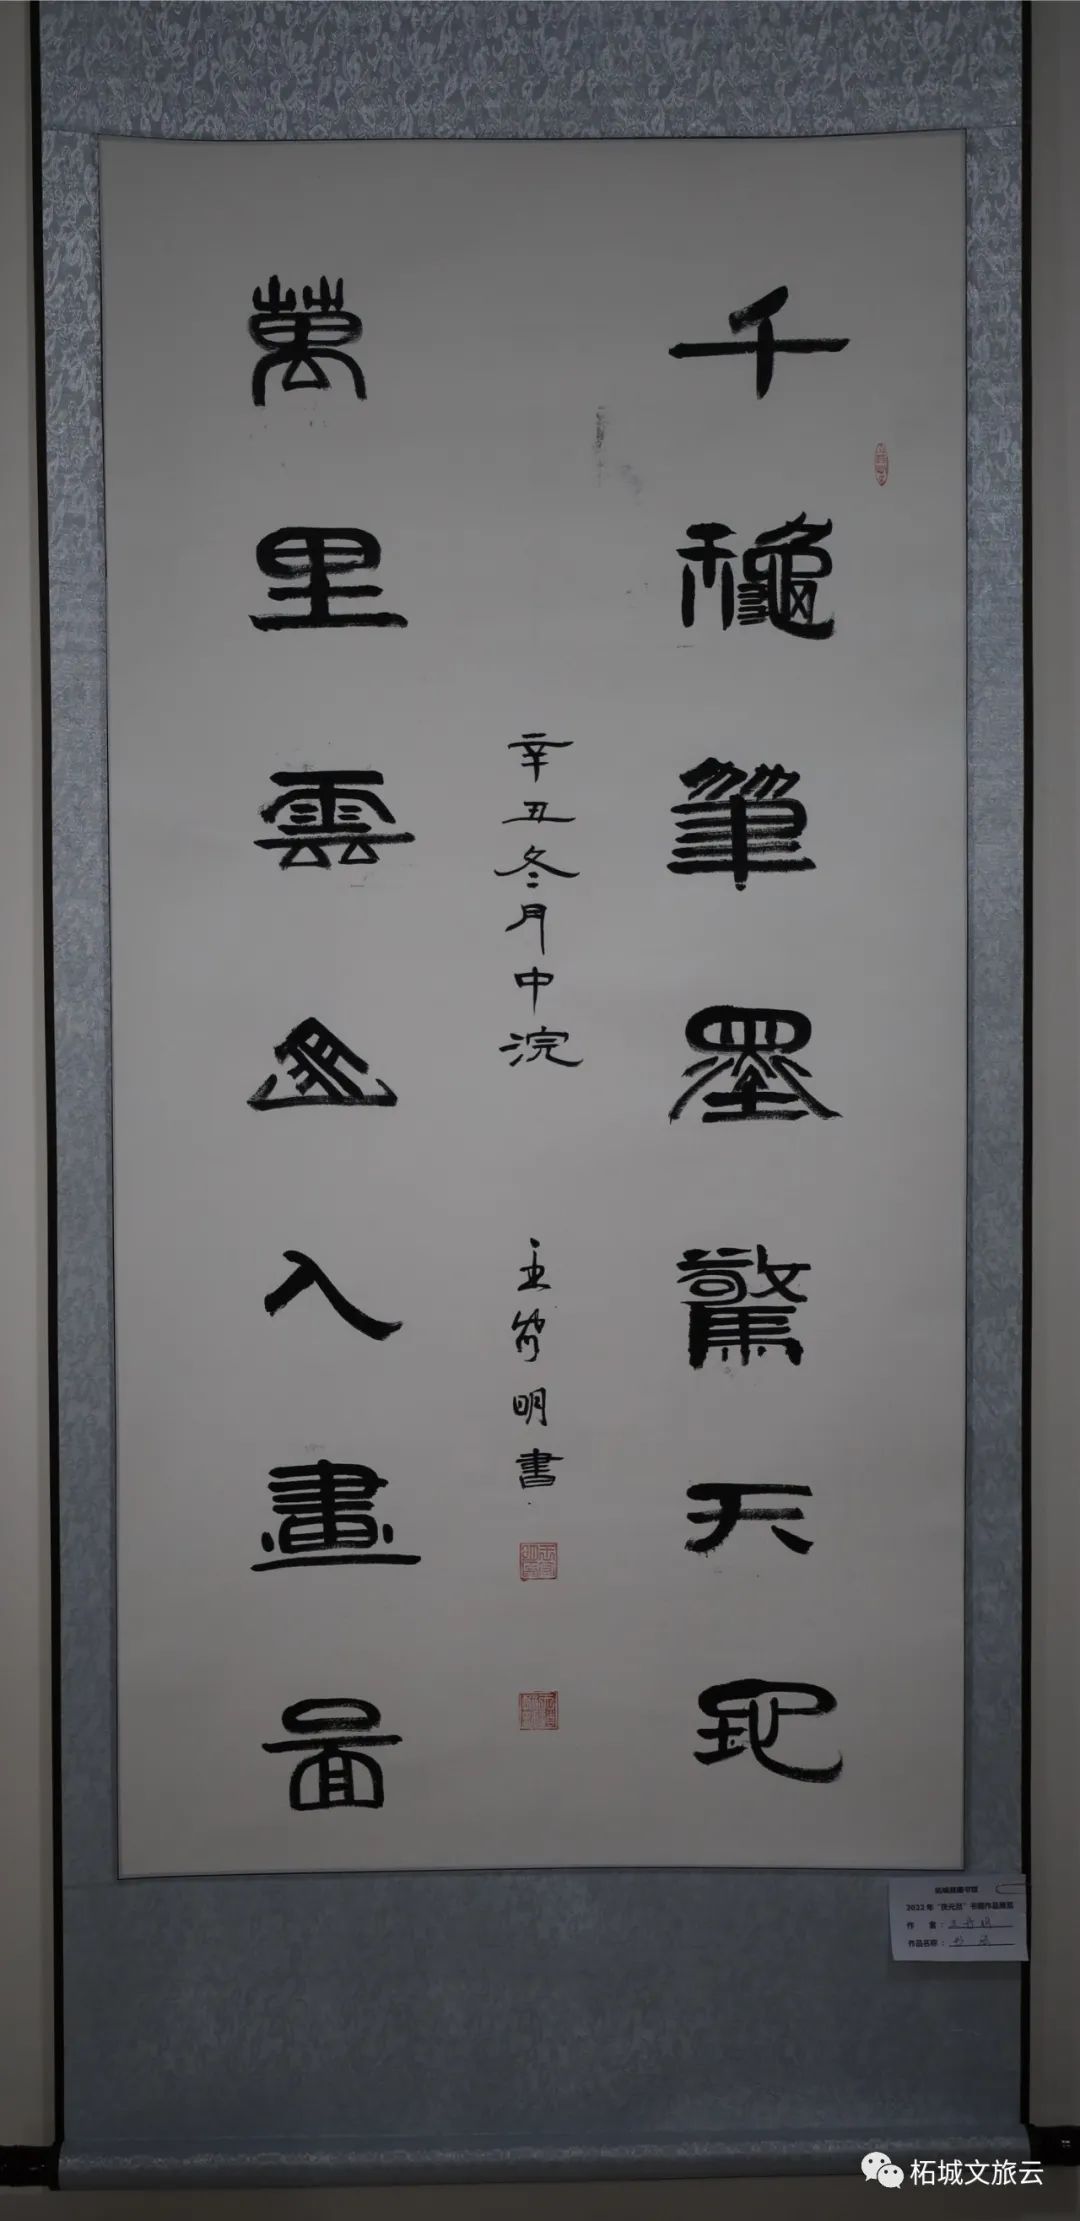 千龝筆墨驚天地
萬里雲山入畫圖
辛丑冬月中浣
王 明書
柘城县图书馆
2022年“庆元旦”书画作品展览
作 者：
作品名称：
柘城文旅云